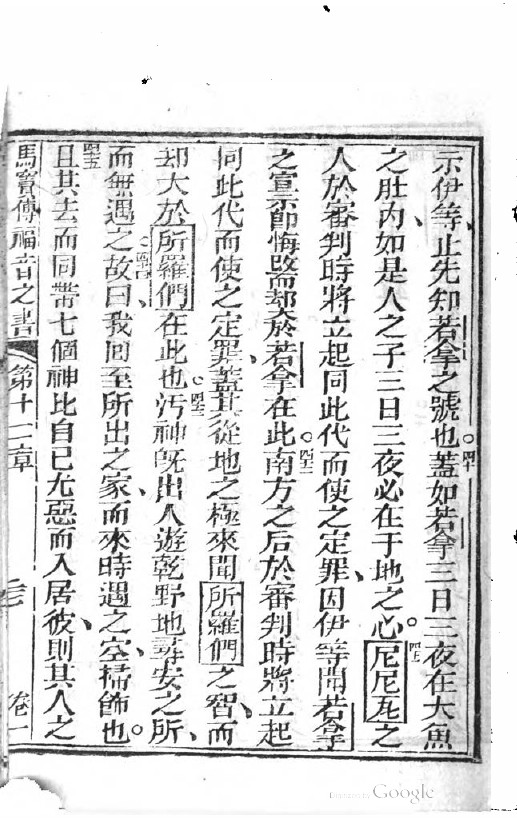 示伊等、止先知若拿之號也。四十蓋如若拿三日三夜在大魚
之肚內、如是人之子三日三夜必在于地之心。四一尼尼瓦之
人於審判時將立起同此代而使之定罪、因伊等聞若拿
之宣示卽悔改、而却大於若拿在此。四二南方之后於審判時將立起
同此代而使之定罪、蓋其從地之極來聞所羅們之智、而
却大於所羅們在此也。四三污神旣出人遊乾野地尋安之所、
而無遇之。四四故曰、我回至所出之家、而來時遇之空掃飾也。
四五且其去而同帶七個神比自已尤惡而入居彼、則其人之
馬竇傳福音之書 第十二章 卷一
Digitized by Google